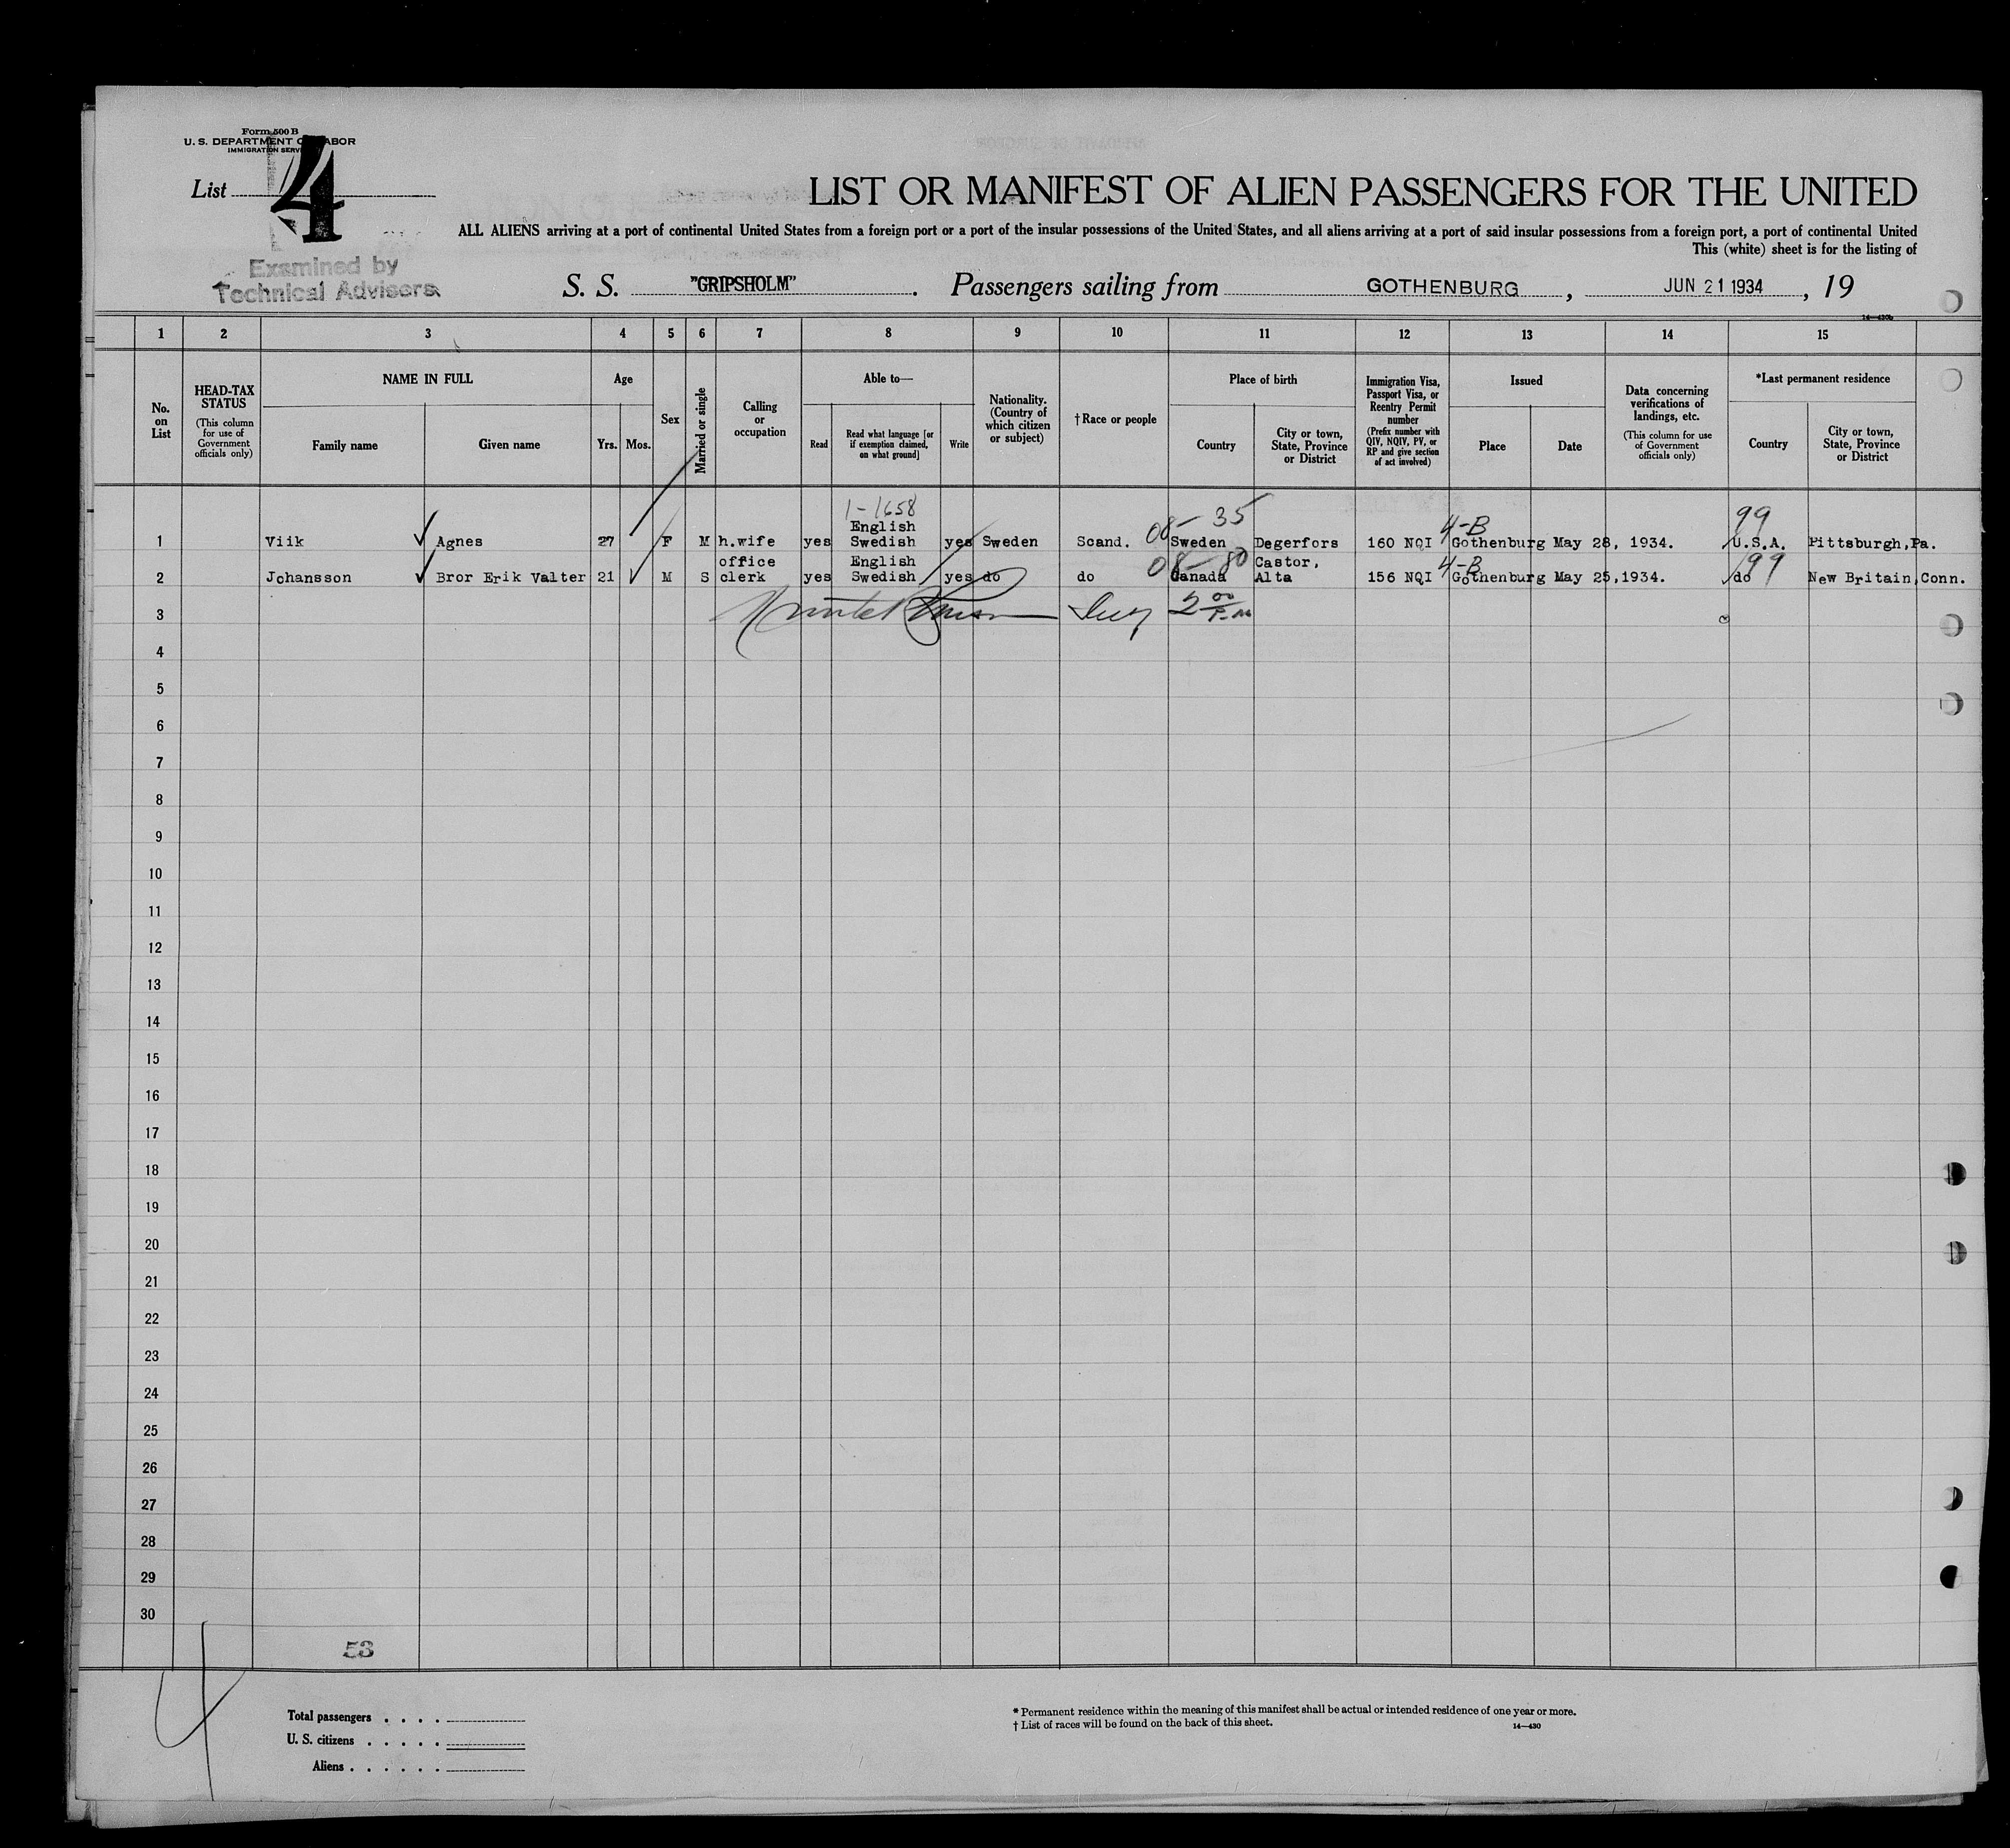 Form 500 B
U. S. DEPARTMENT OF LABOR
IMMIGRATION SERVICE
List 4
LIST OR MANIFEST OF ALIEN PASSENGERS FOR THE UNITED
ALL ALIENS arriving at a port of continental United States from a foreign port or a port of the insular possessions of the United States, and all aliens arriving at a port of said insular possessions from a foreign port, a port of continental United
This (white) sheet is for the listing of
Examined by
Technical Advisers
S. S. "GRIPSHOLM". Passengers sailing from GOTHENBURG, JUN 21 1934, 19
14—430b
1 2 3 4 5 6 7 8 9 10 11 12 13 14 15
No. on List
HEAD-TAX STATUS
(This column for use of Government officials only)
NAME IN FULL
Family name Given name
Age
Yrs. Mos.
Sex
Married or single
Calling or occupation
Able to—
Read Read what language [or if exemption claimed, on what ground] Write
Nationality. (Country of which citizen or subject)
† Race or people
Place of birth
Country City or town, State, Province or District
Immigration Visa, Passport Visa, or Reentry Permit number
(Prefix number with QIV, NQIV, PV, or RP and give section of act involved)
Issued
Place Date
Data concerning verifications of landings, etc.
(This column for use of Government officials only)
*Last permanent residence
Country City or town, State, Province or District
1-1658 08- 35 4-B 99
1 Viik Agnes 27 F M h.wife yes English Swedish yes Sweden Scand. Sweden Degerfors 160 NQI Gothenburg May 28, 1934. U.S.A. Pittsburgh,Pa.
08- 80 4-B 99
2 Johansson Bror Erik Valter 21 M S office clerk yes English Swedish yes do do Canada Castor, Alta 156 NQI Gothenburg May 25,1934. do New Britain,Conn.
3 2 00 P.M
4
5
6
7
8
9
10
11
12
13
14
15
16
17
18
19
20
21
22
23
24
25
26
27
28
29
30
53
4
Total passengers . . . .
U. S. citizens . . . . .
Aliens . . . . . .
* Permanent residence within the meaning of this manifest shall be actual or intended residence of one year or more.
† List of races will be found on the back of this sheet.
14—430